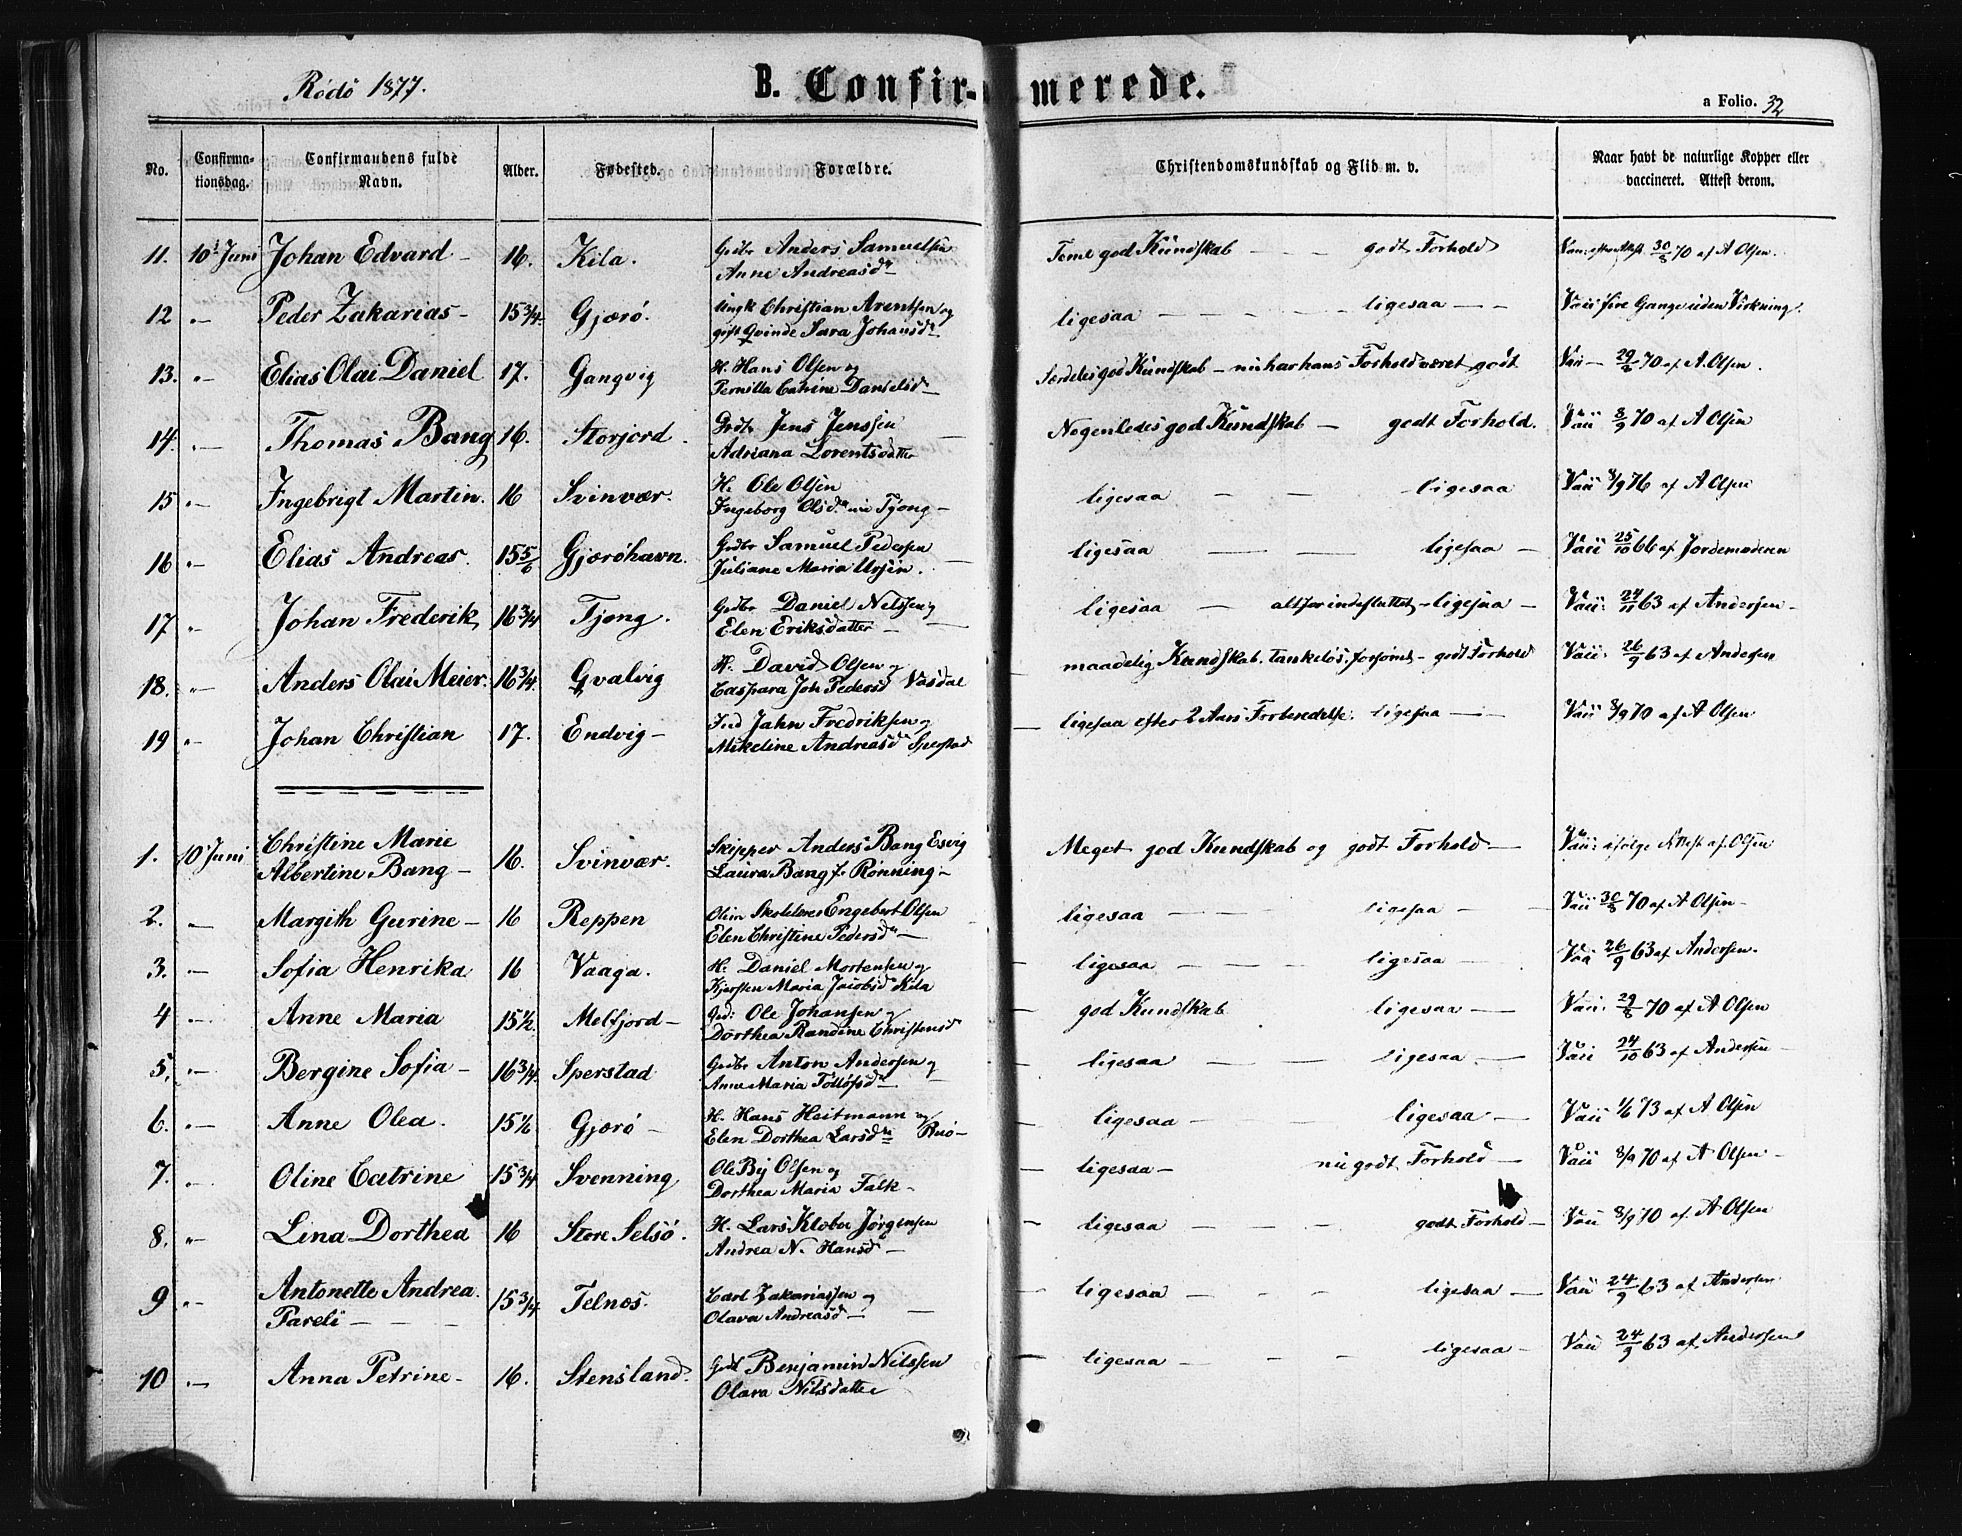 Rödö 1877.
B. Confirmerede.
a Folio. 32
No. Confirmationsdag. Confirmandens fulde Navn. Alder. Fødested. Forældre. Christendomskundskab og Flid m. v. Naar havt de naturlige Kopper eller vaccineret. Attest derom.
11. 10' Juni Johan Edvard - 16. Kila. Gdbr Anders Samuelsen Anne Andreasdr - Teml god Kundskab - - - godt Forhold Vacc: efter Attest 30/8 70 af A Olsen.
12 "- Peder Zakarias - 15 3/4. Gjærö. Ungk Christian Arentsen og gift Qvinde Sara Johansdr ligesaa - - - ligesaa - - Vacc fire Gange uden Virkning.
13. "- Elias Olai Daniel 17. Gangvig H. Hans Olsen og Pernilla Catrine Danielsd - Særdeles god Kundskab - nu har hans Forhold været godt Vacc - 29/8 70 af A. Olsen.
14. "- Thomas Bang 16. Storjord. Gdbr Jens Jenssen Adriana Lorentsdatter Nogenledes god Kundskab - godt Forhold. Vacc 8/9 70 af A Olsen
15 "- Ingebrigt Martin. 16 Svinvær. H. Ole Olsen Ingeborg Olsdr Tjong - ligesaa - - ligesaa Vacc 8/9 76 af A Olsen
16 "- Elias Andreas. 15 5/6 Gjæröhavn. Gdbr Samuel Pedersen Juliane Maria Ursin. ligesaa - - ligesaa - Vacc 25/10 66 af Jordemoderen
17 "- Johan Frederik 16 3/4 Tjong. Gdbr Daniel Nilssen og Elen Eriksdatter - ligesaa - altfor indesluttet - ligesaa - Vacc: 24/11 63 af Andersen -
18. "- Anders Olai Meier. 16 3/4. Qvalvig H. David Olsen og Caspara Joh Pedersd Vasdal maadelig Kundskab. tankelös. forsömt - godt Forhold Vacc: 26/9 63 af Andersen
19 "- Johan Christian 17. Endvig - Ind Jahn Fredriksen og Mikeline Andreasd Sperstad - ligesaa efter 2 Aars Forberedelse. ligesaa - - Vacc 8/9 70 af A Olsen
1. 10' Juni Christine Marie Albertine Bang - 16. Svinvær. Skipper Anders Bang Esvig Laura Bang f. Rönning - Meget god Kundskab og godt Forhold - Vacc: ifølge Attest af Olsen
2. "- Margith Gurine - 16 Reppen Olim Skolelærer Engebert Olsen Elen Christine Pedersdr - ligesaa - - - ligesaa - - Vacc 30/8 70 af A Olsen -
3. "- Sofia Henrika 16 Vaaga. H. Daniel Mortensen og Kjersten Maria Jacobsd Kila ligesaa - - - ligesaa - - Vacc 26/9 63 af Andersen.
4 "- Anne Maria 15 1/2. Melfjord - Gd: Ole Johansen og Dorthea Randine Christensd god Kundskab ligesaa - Vacc: 29/8 70 af A Olsen
5. "- Bergine Sofia - 16 3/4. Sperstad Gdbr Anton Andersen og Anne Maria Tollöfsd - ligesaa - - - ligesaa - - Vacc 24/10 63 af Andersen -
6. "- Anne Olea. 15 1/6 Gjærö - H. Hans Heitmann og Elen Dorthea Larsdr - ligesaa ligesaa - Vacc 1/6 73 af A Olsen
7. "- Oline Catrine 15 3/4 Svenning Ole Bij Olsen og Dorthea Maria Falk - - ligesaa - nu godt Forhold - Vacc 8/9 70 af A Olsen -
8. "- Lina Dorthea 16 Store Selsö. H. Lars Klæboe Jørgensen Andrea N. Hansd - - ligesaa - - - godt Forhold - Vacc 8/9 70 af A Olsen
9 "- Antonette Andrea Pareli - - - 15 3/4 Telnes. Carl Zakariassen og Olava Andreasd - - ligesaa - - - ligesaa - Vacc 24/9 63 af Andersen
10 "- Anna Petrine - 16. Stensland. Gdb Benjamin Nilssen Olava Nilsdatter - ligesaa - - - ligesaa - Vacc 24/9 63 af Andersen